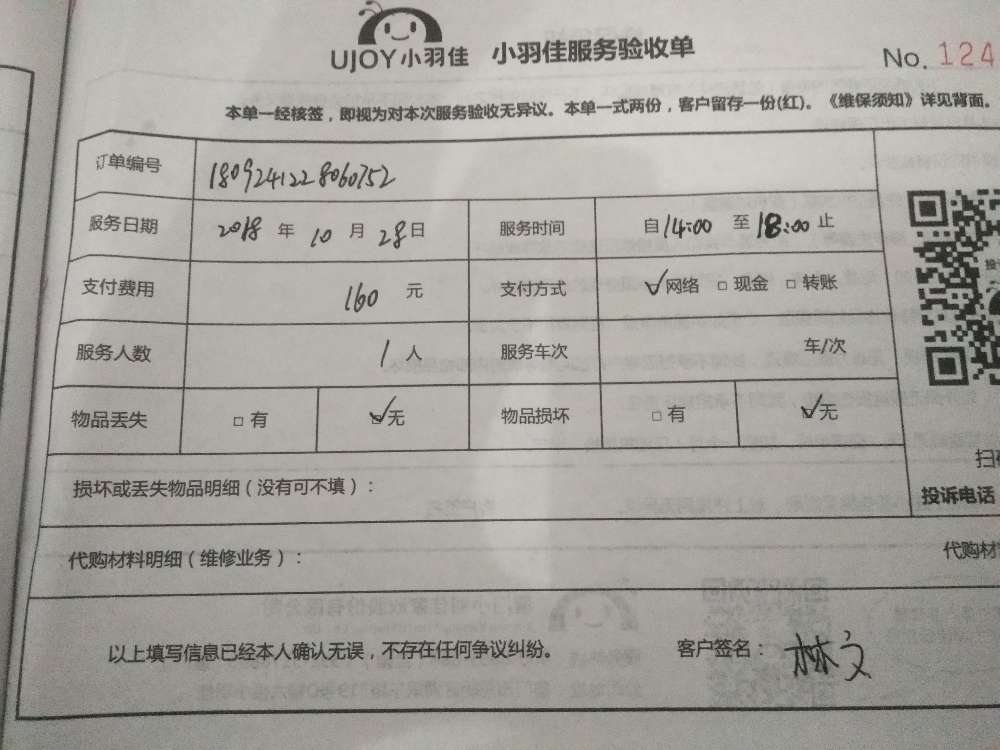 UJOY小羽佳 小羽佳服务验收单 No. 124
本单一经核签，即视为对本次服务验收无异议。本单一式两份，客户留存一份(红)。《维保须知》详见背面。
订单编号 1809241228060752
服务日期 2018 年 10 月 28 日 服务时间 自 14:00 至 18:00 止
支付费用 160 元 支付方式 ☑网络 □现金 □转账
服务人数 1 人 服务车次 车/次
物品丢失 □有 ☑无 物品损坏 □有 ☑无
扫
损坏或丢失物品明细（没有可不填）： 投诉电话
代购材料明细（维修业务）： 代购材
以上填写信息已经本人确认无误，不存在任何争议纠纷。 客户签名： 林文